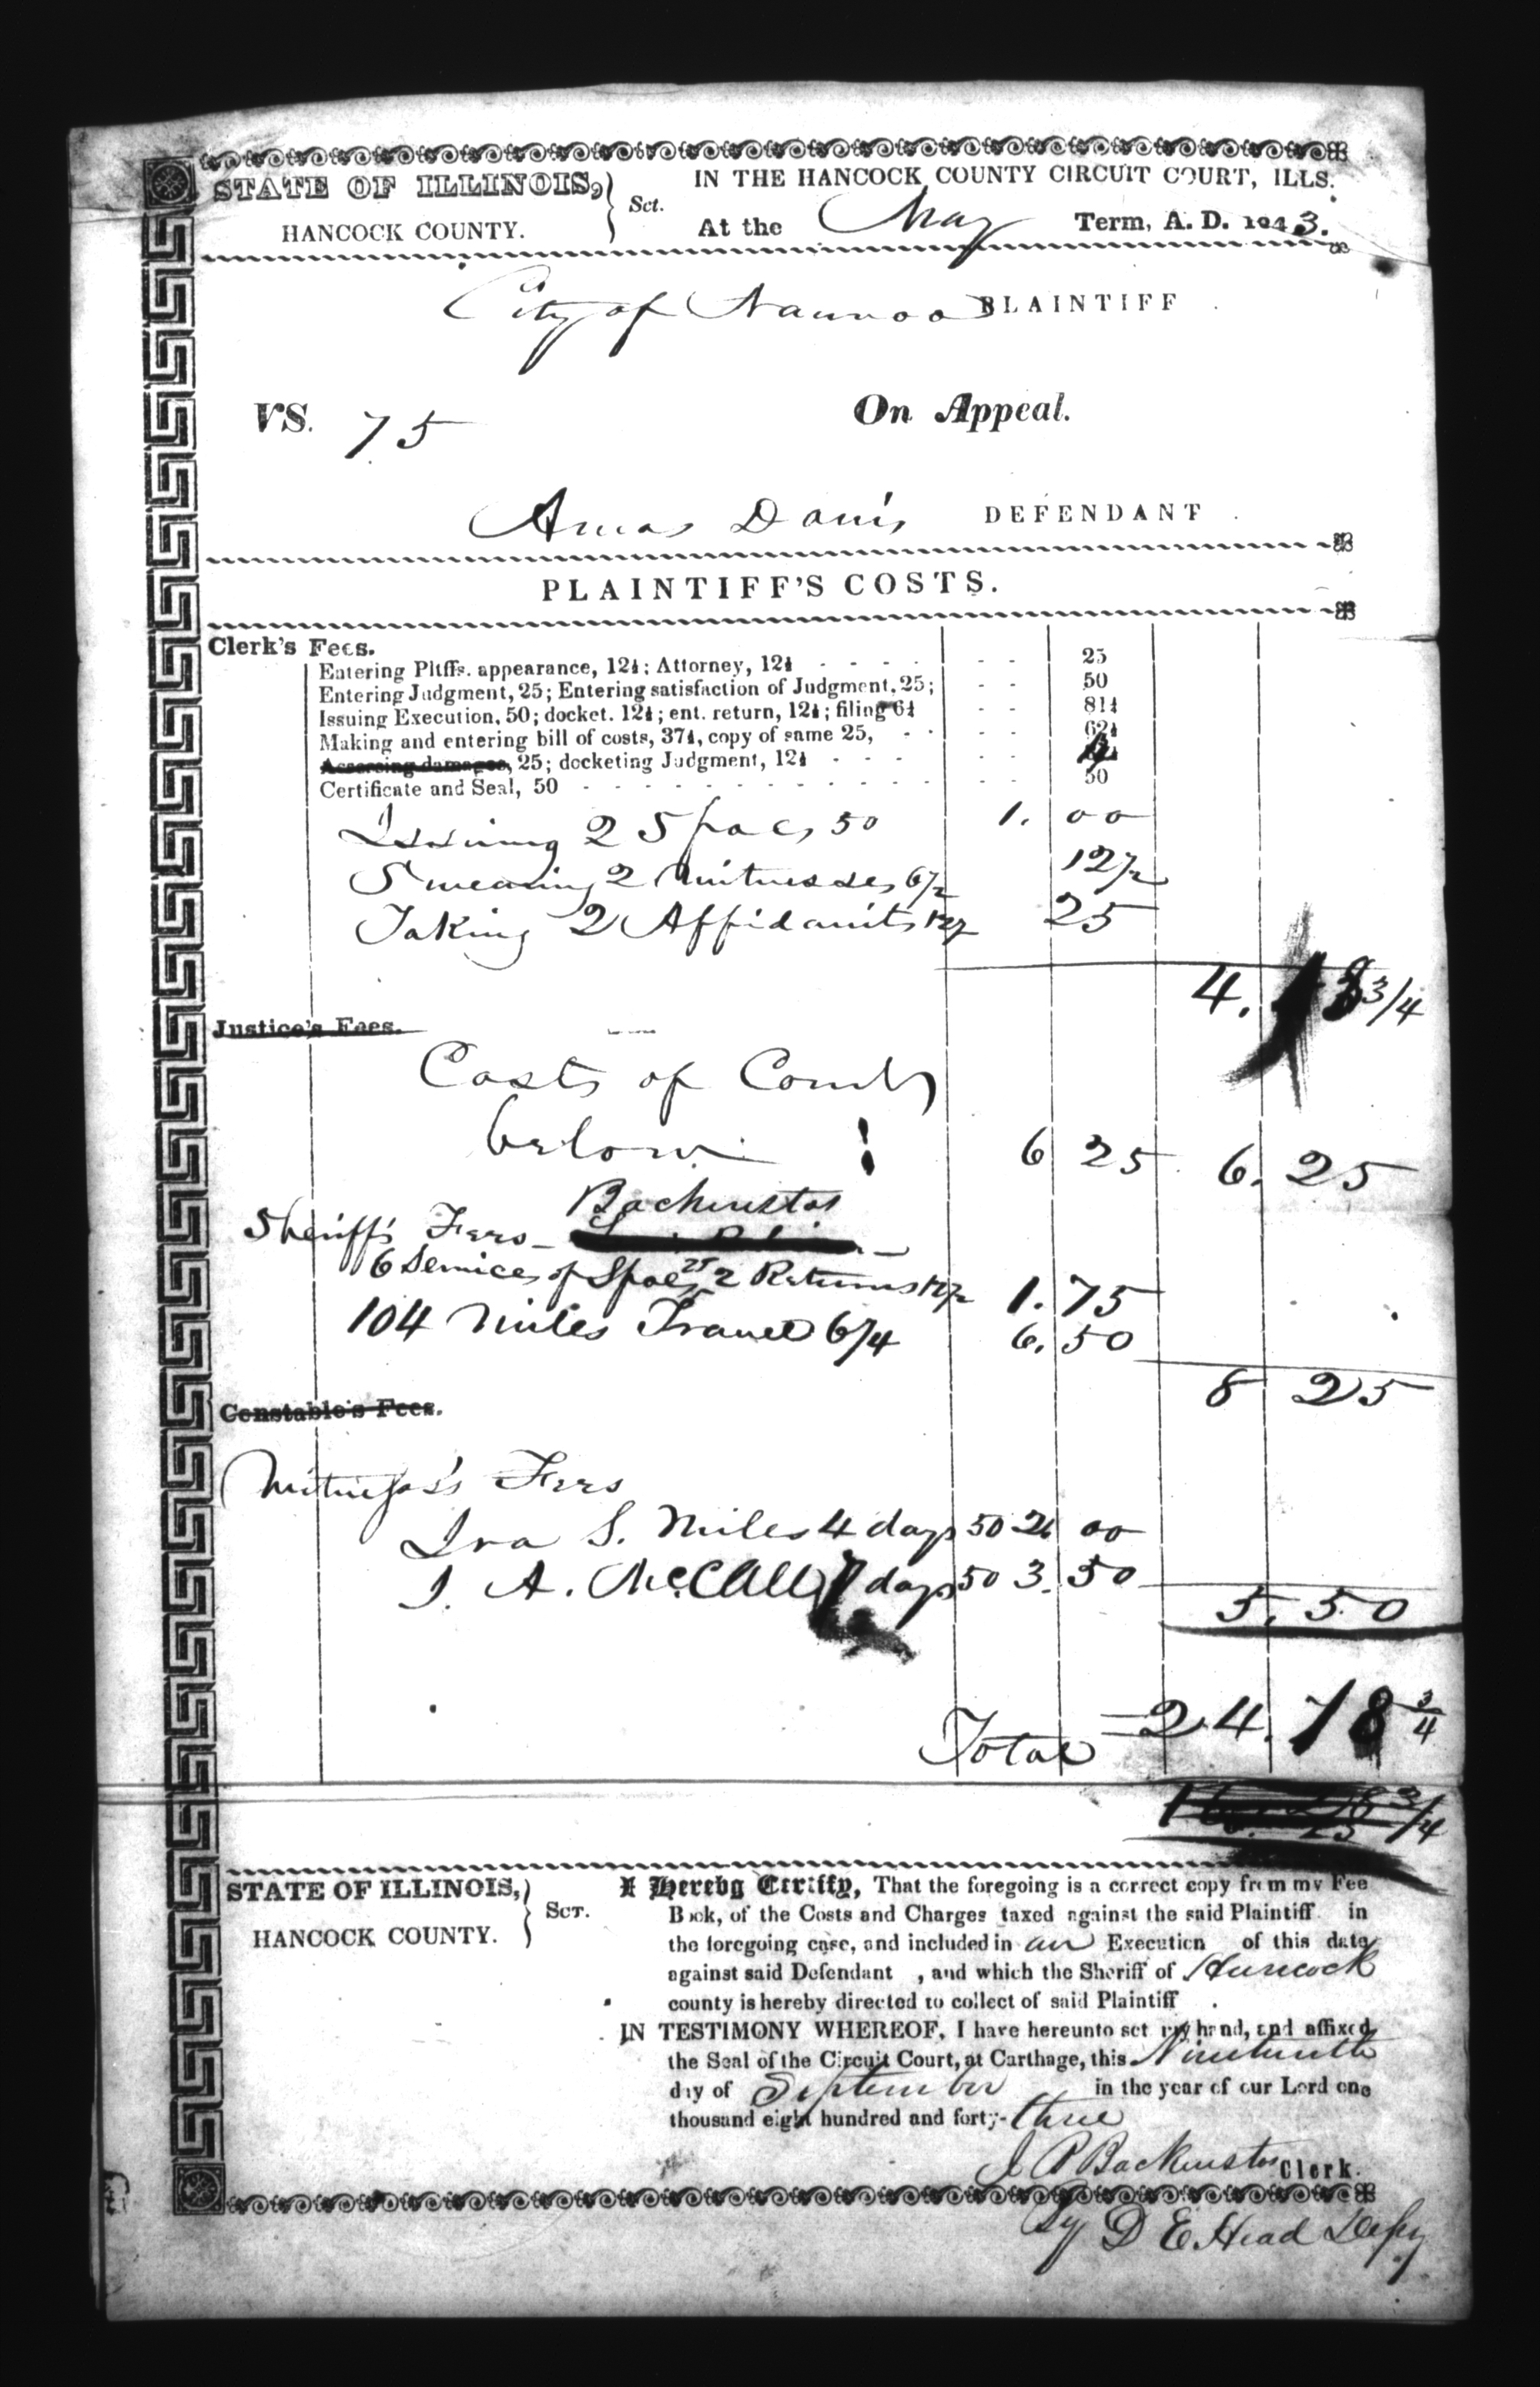 STATE OF ILLINOIS,
HANCOCK COUNTY.
Sct.
IN THE HANCOCK COUNTY CIRCUIT COURT, ILLS.
At the May Term, A. D. 1843.
City of Nauvoo PLAINTIFF
VS. 75 On Appeal.
Amos Davis DEFENDANT
PLAINTIFF'S COSTS.
Clerk's Fees.
Entering Pltffs. appearance, 12½; Attorney, 12½ - - - - - - 25
Entering Judgment, 25; Entering satisfaction of Judgment, 25; - - 50
Issuing Execution, 50; docket. 12½; ent. return, 12½; filing 6¼ - - 81¼
Making and entering bill of costs, 37½, copy of same 25, - - - - 62½
Assessing damages, 25; docketing Judgment, 12½ - - - - -
Certificate and Seal, 50 - - - - - - - - - - - - 50
Issuing 2 Spaes 50 1. 00
Swearing 2 Witnesses 6/2 12½
Taking 2 Affidavits 12½ 25
4. 18 3/4
Justice's Fees.
Costs of Court
below 6 25 6. 25
Backenstos
Sheriff's Fees -
6 Services of Spaes 25 2 Returns 12½ 1. 75
104 miles Travel 6/4 6. 50
8 25
Constable's Fees.
Witness's Fees
Ira S. Miles 4 days 50 2 00
J. A. McCall 7 days 50 3. 50
5. 50
Total = 24. 18 3/4
STATE OF ILLINOIS,
HANCOCK COUNTY.
Sct.
I Hereby Certify, That the foregoing is a correct copy from my Fee
Book, of the Costs and Charges taxed against the said Plaintiff in
the foregoing case, and included in an Execution of this date
against said Defendant , and which the Sheriff of Hancock
county is hereby directed to collect of said Plaintiff .
IN TESTIMONY WHEREOF, I have hereunto set my hand, and affixed
the Seal of the Circuit Court, at Carthage, this Nineteenth
day of September in the year of our Lord one
thousand eight hundred and forty-three
J B Backenstos Clerk.
By D E Head Depy